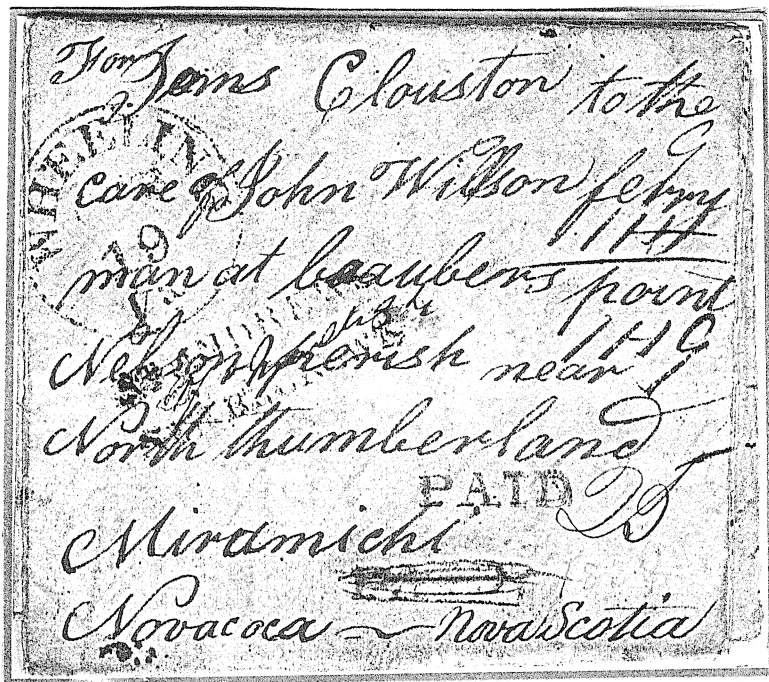 For Jams Clouston to the
care of John Willson ferry
man at baaubers point
Nelson perish near
North thumberland
PAID 25
Miramichi
Novacoca — Nova Scotia
WHEELING
19